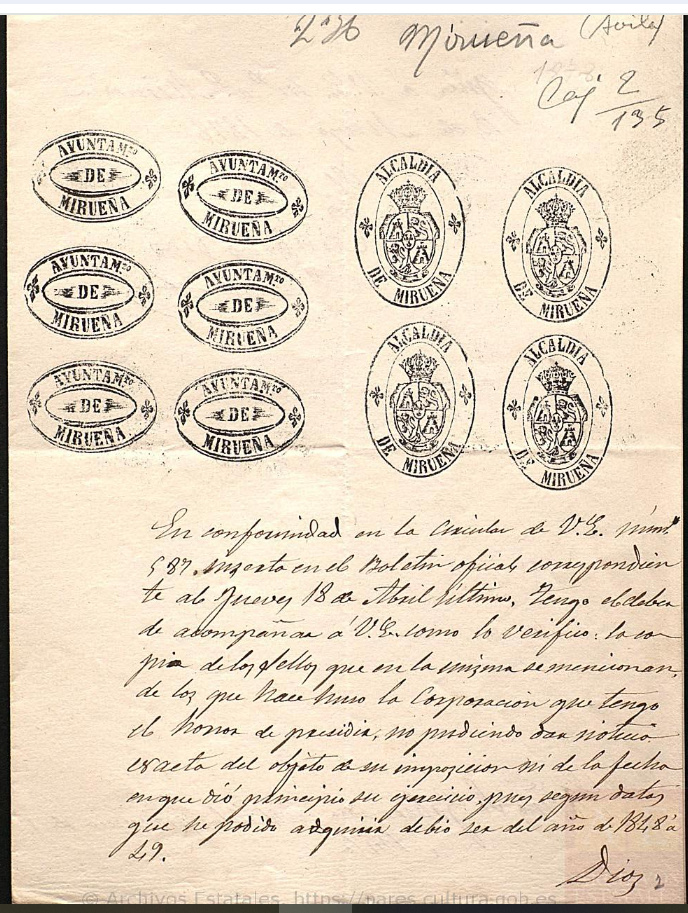 236 Mirueña (Avila)
Caj 2/135
AYUNTAM.TO DE MIRUEÑA
AYUNTAM.TO DE MIRUEÑA
ALCALDIA DE MIRUEÑA
ALCALDIA DE MIRUEÑA
AYUNTAM.TO DE MIRUEÑA
AYUNTAM.TO DE MIRUEÑA
ALCALDIA DE MIRUEÑA
ALCALDIA DE MIRUEÑA
AYUNTAM.TO DE MIRUEÑA
AYUNTAM.TO DE MIRUEÑA
En conformidad en la Circular de V.E. núm.º
587. inserta en el Boletin oficial correspondien
te al Jueves 18 de Abril último, Tengo el deber
de acompañar á V.E. como lo verifico: la co
pia de los sellos que en la misma se mencionan,
de los que hace huso la Corporacion que tengo
el honor de presidir, no pudiendo dar noticia
exacta del objeto de su imposicion ni de la fecha
en que dió principio su ejercicio, pues segun datos
que he podido adquirir debio ser del año de 1848 á
49.
Dios 2
© Archivos Estatales, https://pares.cultura.gob.es